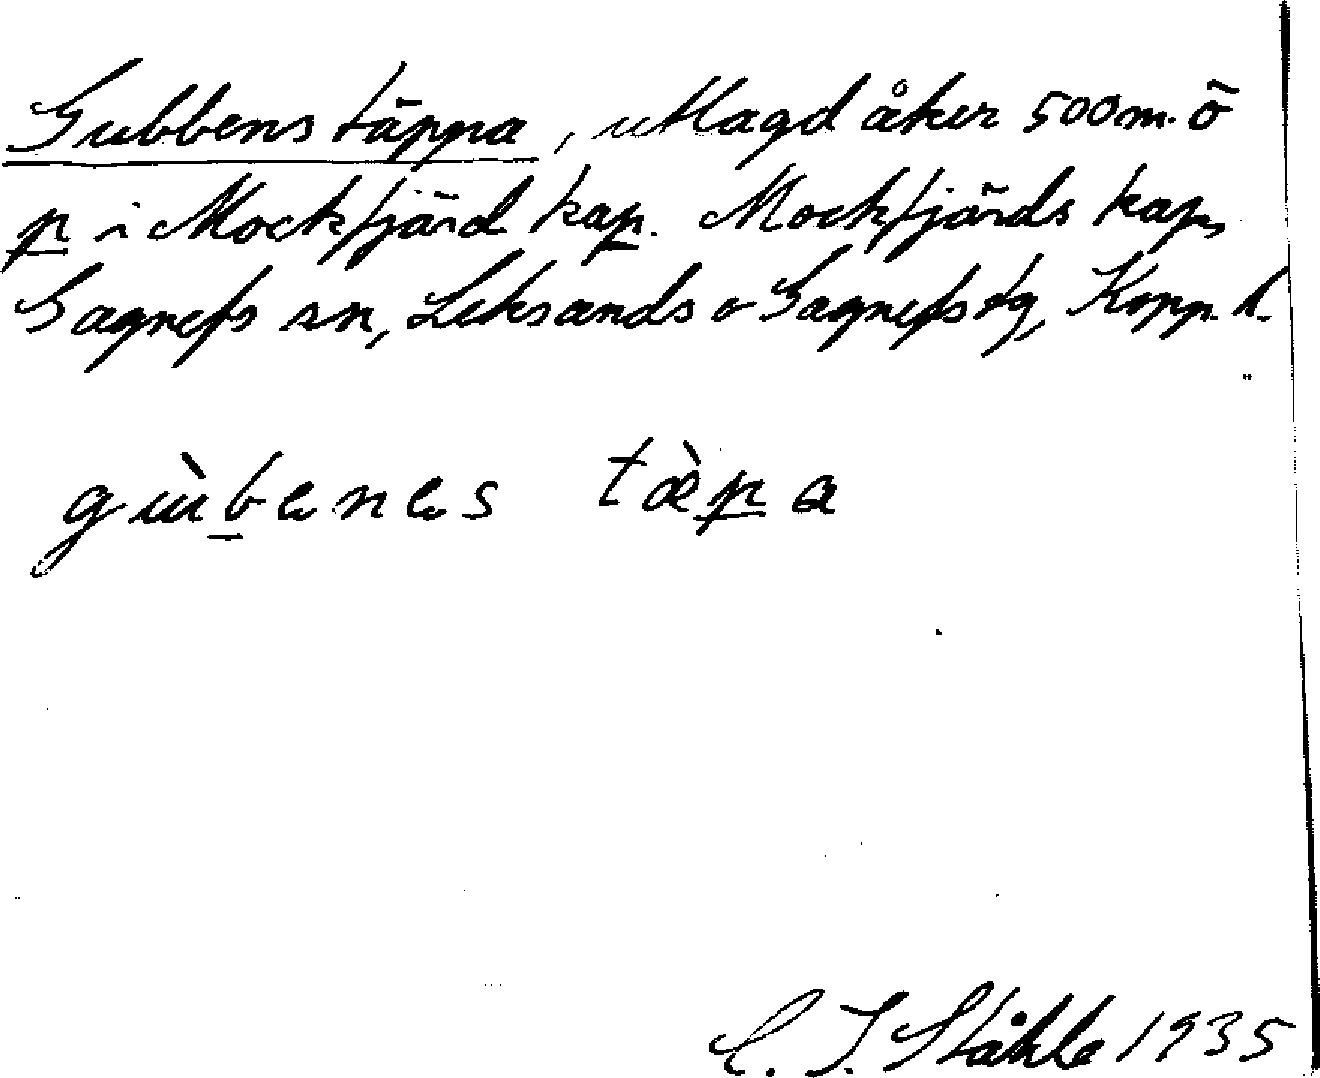 Gubbens täppa, utlagd åker 500 m. ö
p i Mockfjärd kap. Mockfjärds kap,
Gagnefs sn, Leksands o Gagnefs tg, Kopp. l.
gùbenes tæ̀pa
C. I. Ståhle 1935